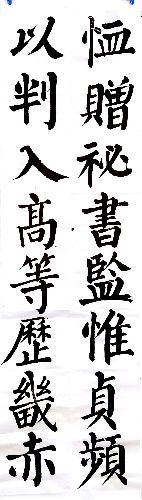 恤贈祕書監惟貞頻
以判入高等歷畿赤